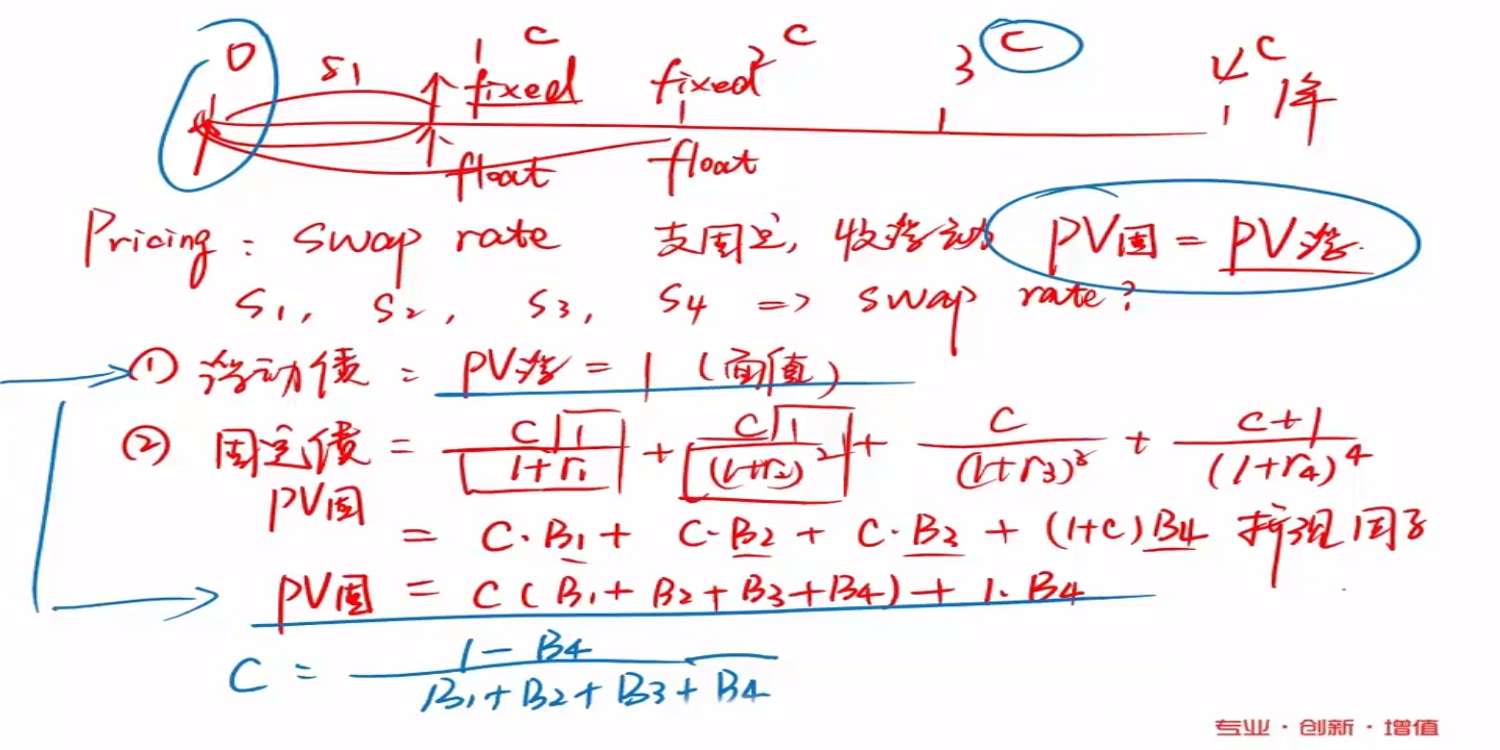 0 S1 1 C 2 C 3 C 4 C
fixed fixed 1年
float float
Pricing : swap rate 支固定, 收浮动 PV固 = PV浮.
S1, S2, S3, S4 => swap rate?
① 浮动债 : PV浮 = 1 (面值)
② 固定债 = C 1/(1+r1) + C 1/(1+r2)^2 + C/(1+r3)^3 + (C+1)/(1+r4)^4
PV固
= C·B1 + C·B2 + C·B3 + (1+C)B4 折现因子
PV固 = C(B1+B2+B3+B4) + 1·B4
C = (1-B4)/(B1+B2+B3+B4)
专业·创新·增值